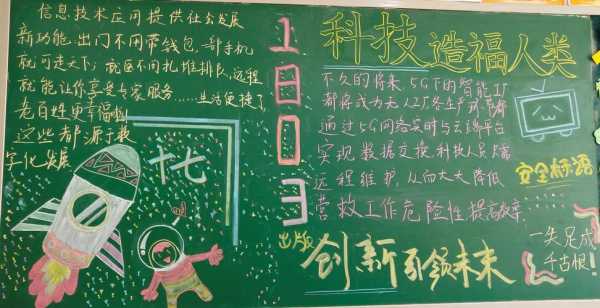 信息技术应用提供社会发展
新功能.出门不用带钱包.一部手机
就可走天下; 就医不用扎堆排队.远程
就能让你享受专家服务……生活便捷了
老百姓更幸福啦
这些都源于数
字化发展
十七
1803
出版
科技造福人类
不久的将来 5G下的智能工厂
都将成为无人工厂
通过5G网络实时与云端平台
实现数据交换 科技人员
远程维护 从而大大降低
营救工作危险性提高效率
创新引领未来
安全标语
一失足成
千古恨!